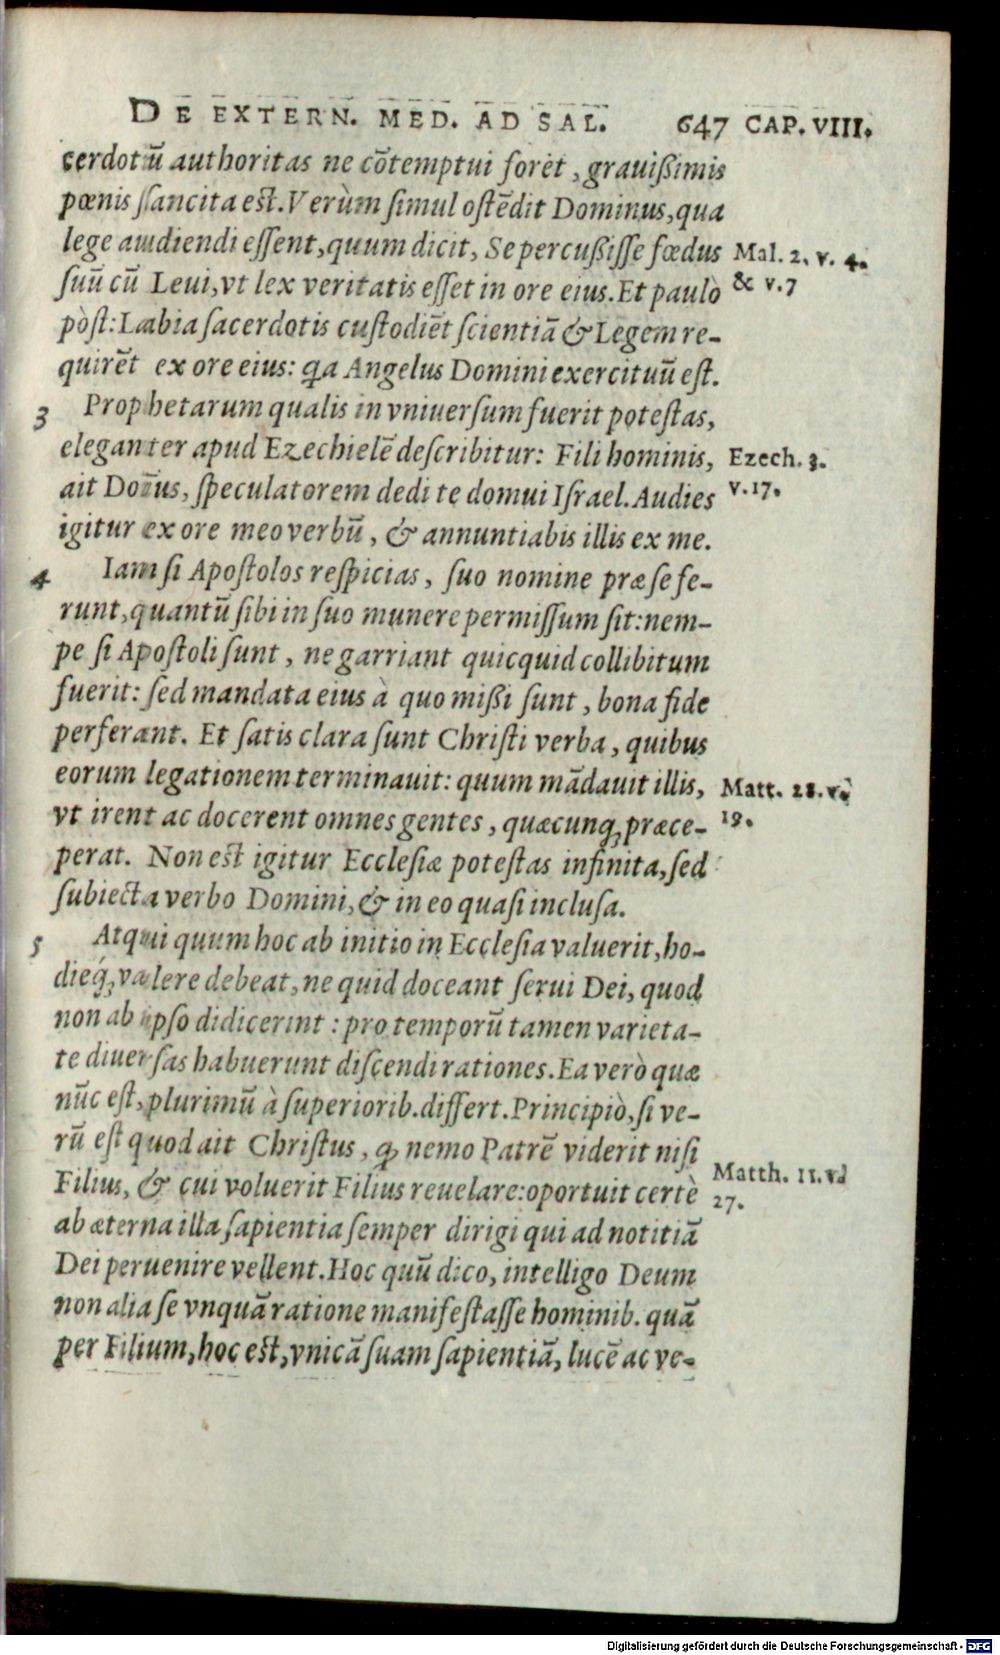 DE EXTERN. MED. AD SAL. 647 CAP. VIII.
cerdotū authoritas ne cōtemptui foret, grauißimis
pœnis sancita est. Verùm simul ostēdit Dominus, qua
lege audiendi essent, quum dicit, Se percußisse fœdus
Mal. 2. v. 4.
suū cū Leui, vt lex veritatis esset in ore eius. Et paulò
& v. 7
pòst: Labia sacerdotis custodiēt scientiā & Legem re-
quirēt ex ore eius: qa Angelus Domini exercituū est.
3 Prophetarum qualis in vniuersum fuerit potestas,
eleganter apud Ezechielē describitur: Fili hominis,
Ezech. 3.
ait Dom̄us, speculatorem dedi te domui Israel. Audies
v. 17.
igitur ex ore meo verbū, & annuntiabis illis ex me.
4 Iam si Apostolos respicias, suo nomine præ se fe-
runt, quantū sibi in suo munere permissum sit: nem-
pe si Apostoli sunt, ne garriant quicquid collibitum
fuerit: sed mandata eius à quo mißi sunt, bona fide
perferant. Et satis clara sunt Christi verba, quibus
eorum legationem terminauit: quum mādauit illis,
Matt. 28. v.
vt irent ac docerent omnes gentes, quæcunq; præce-
19.
perat. Non est igitur Ecclesiæ potestas infinita, sed
subiecta verbo Domini, & in eo quasi inclusa.
5 Atqui quum hoc ab initio in Ecclesia valuerit, ho-
dieq́; valere debeat, ne quid doceant serui Dei, quod
non ab ipso didicerint: pro temporū tamen varieta-
te diuersas habuerunt discendi rationes. Ea verò quæ
nūc est, plurimū à superiorib. differt. Principiò, si ve-
rū est quod ait Christus, ꝙ nemo Patrē viderit nisi
Matth. 11. v.
Filius, & cui voluerit Filius reuelare: oportuit certè
27.
ab æterna illa sapientia semper dirigi qui ad notitiā
Dei peruenire vellent. Hoc quū dico, intelligo Deum
non alia se vnquā ratione manifestasse hominib. quā
per Filium, hoc est, vnicā suam sapientiā, lucē ac ve-
Digitalisierung gefördert durch die Deutsche Forschungsgemeinschaft - DFG